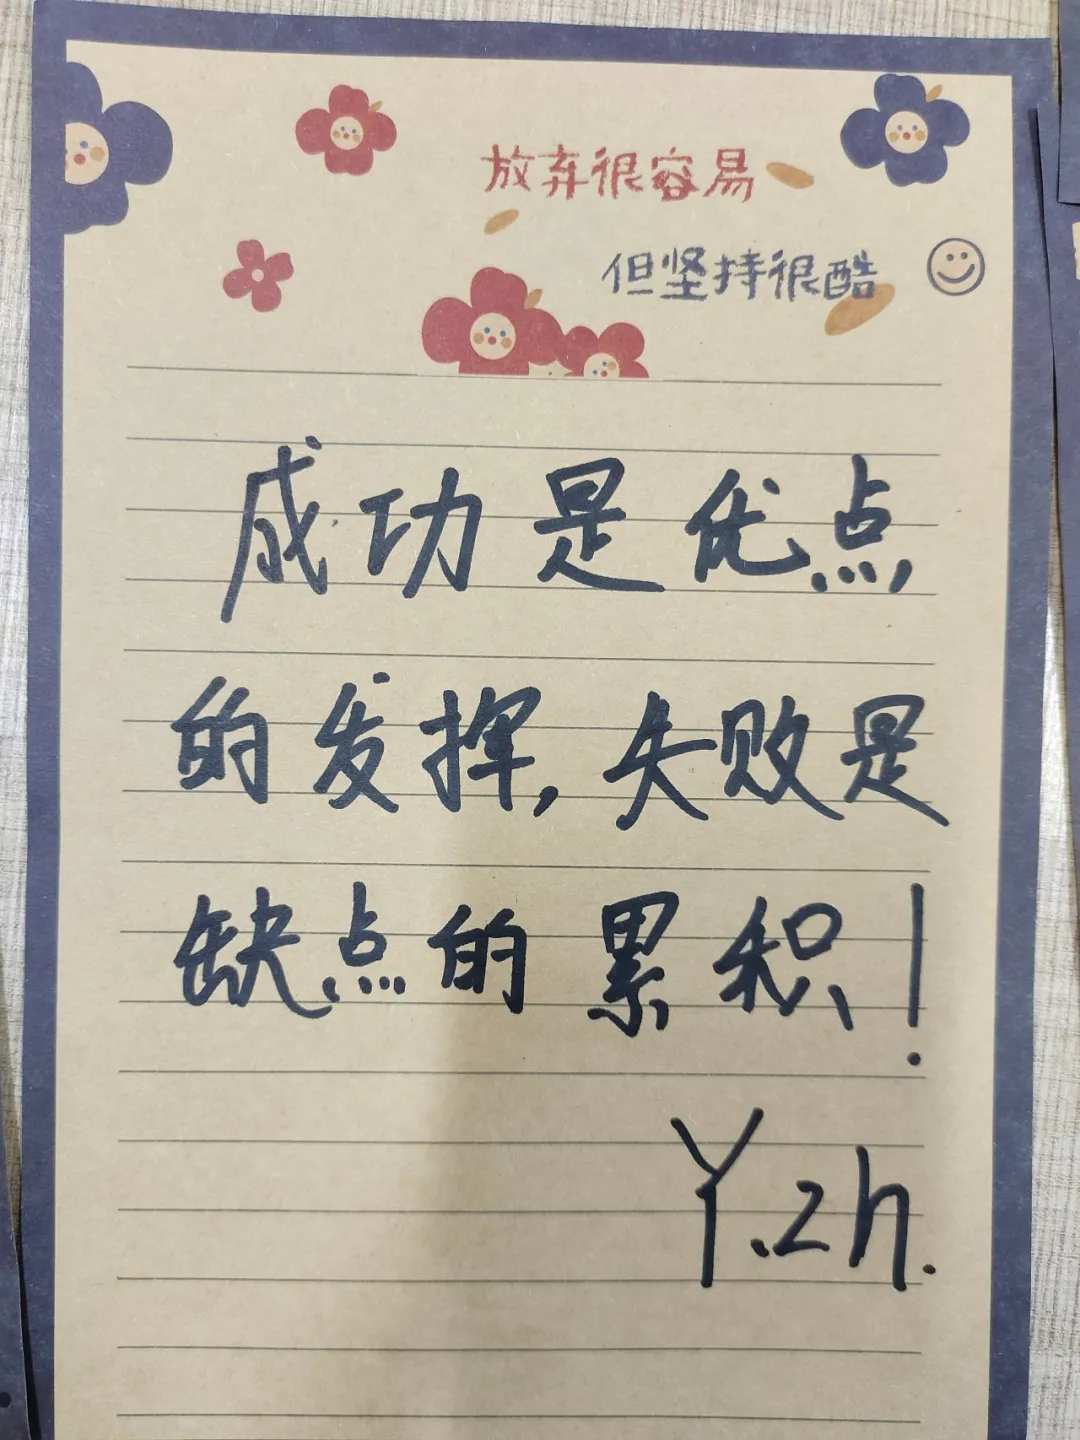 放弃很容易
但坚持很酷
成功是优点
的发挥,失败是
缺点的累积!
Y.zh.